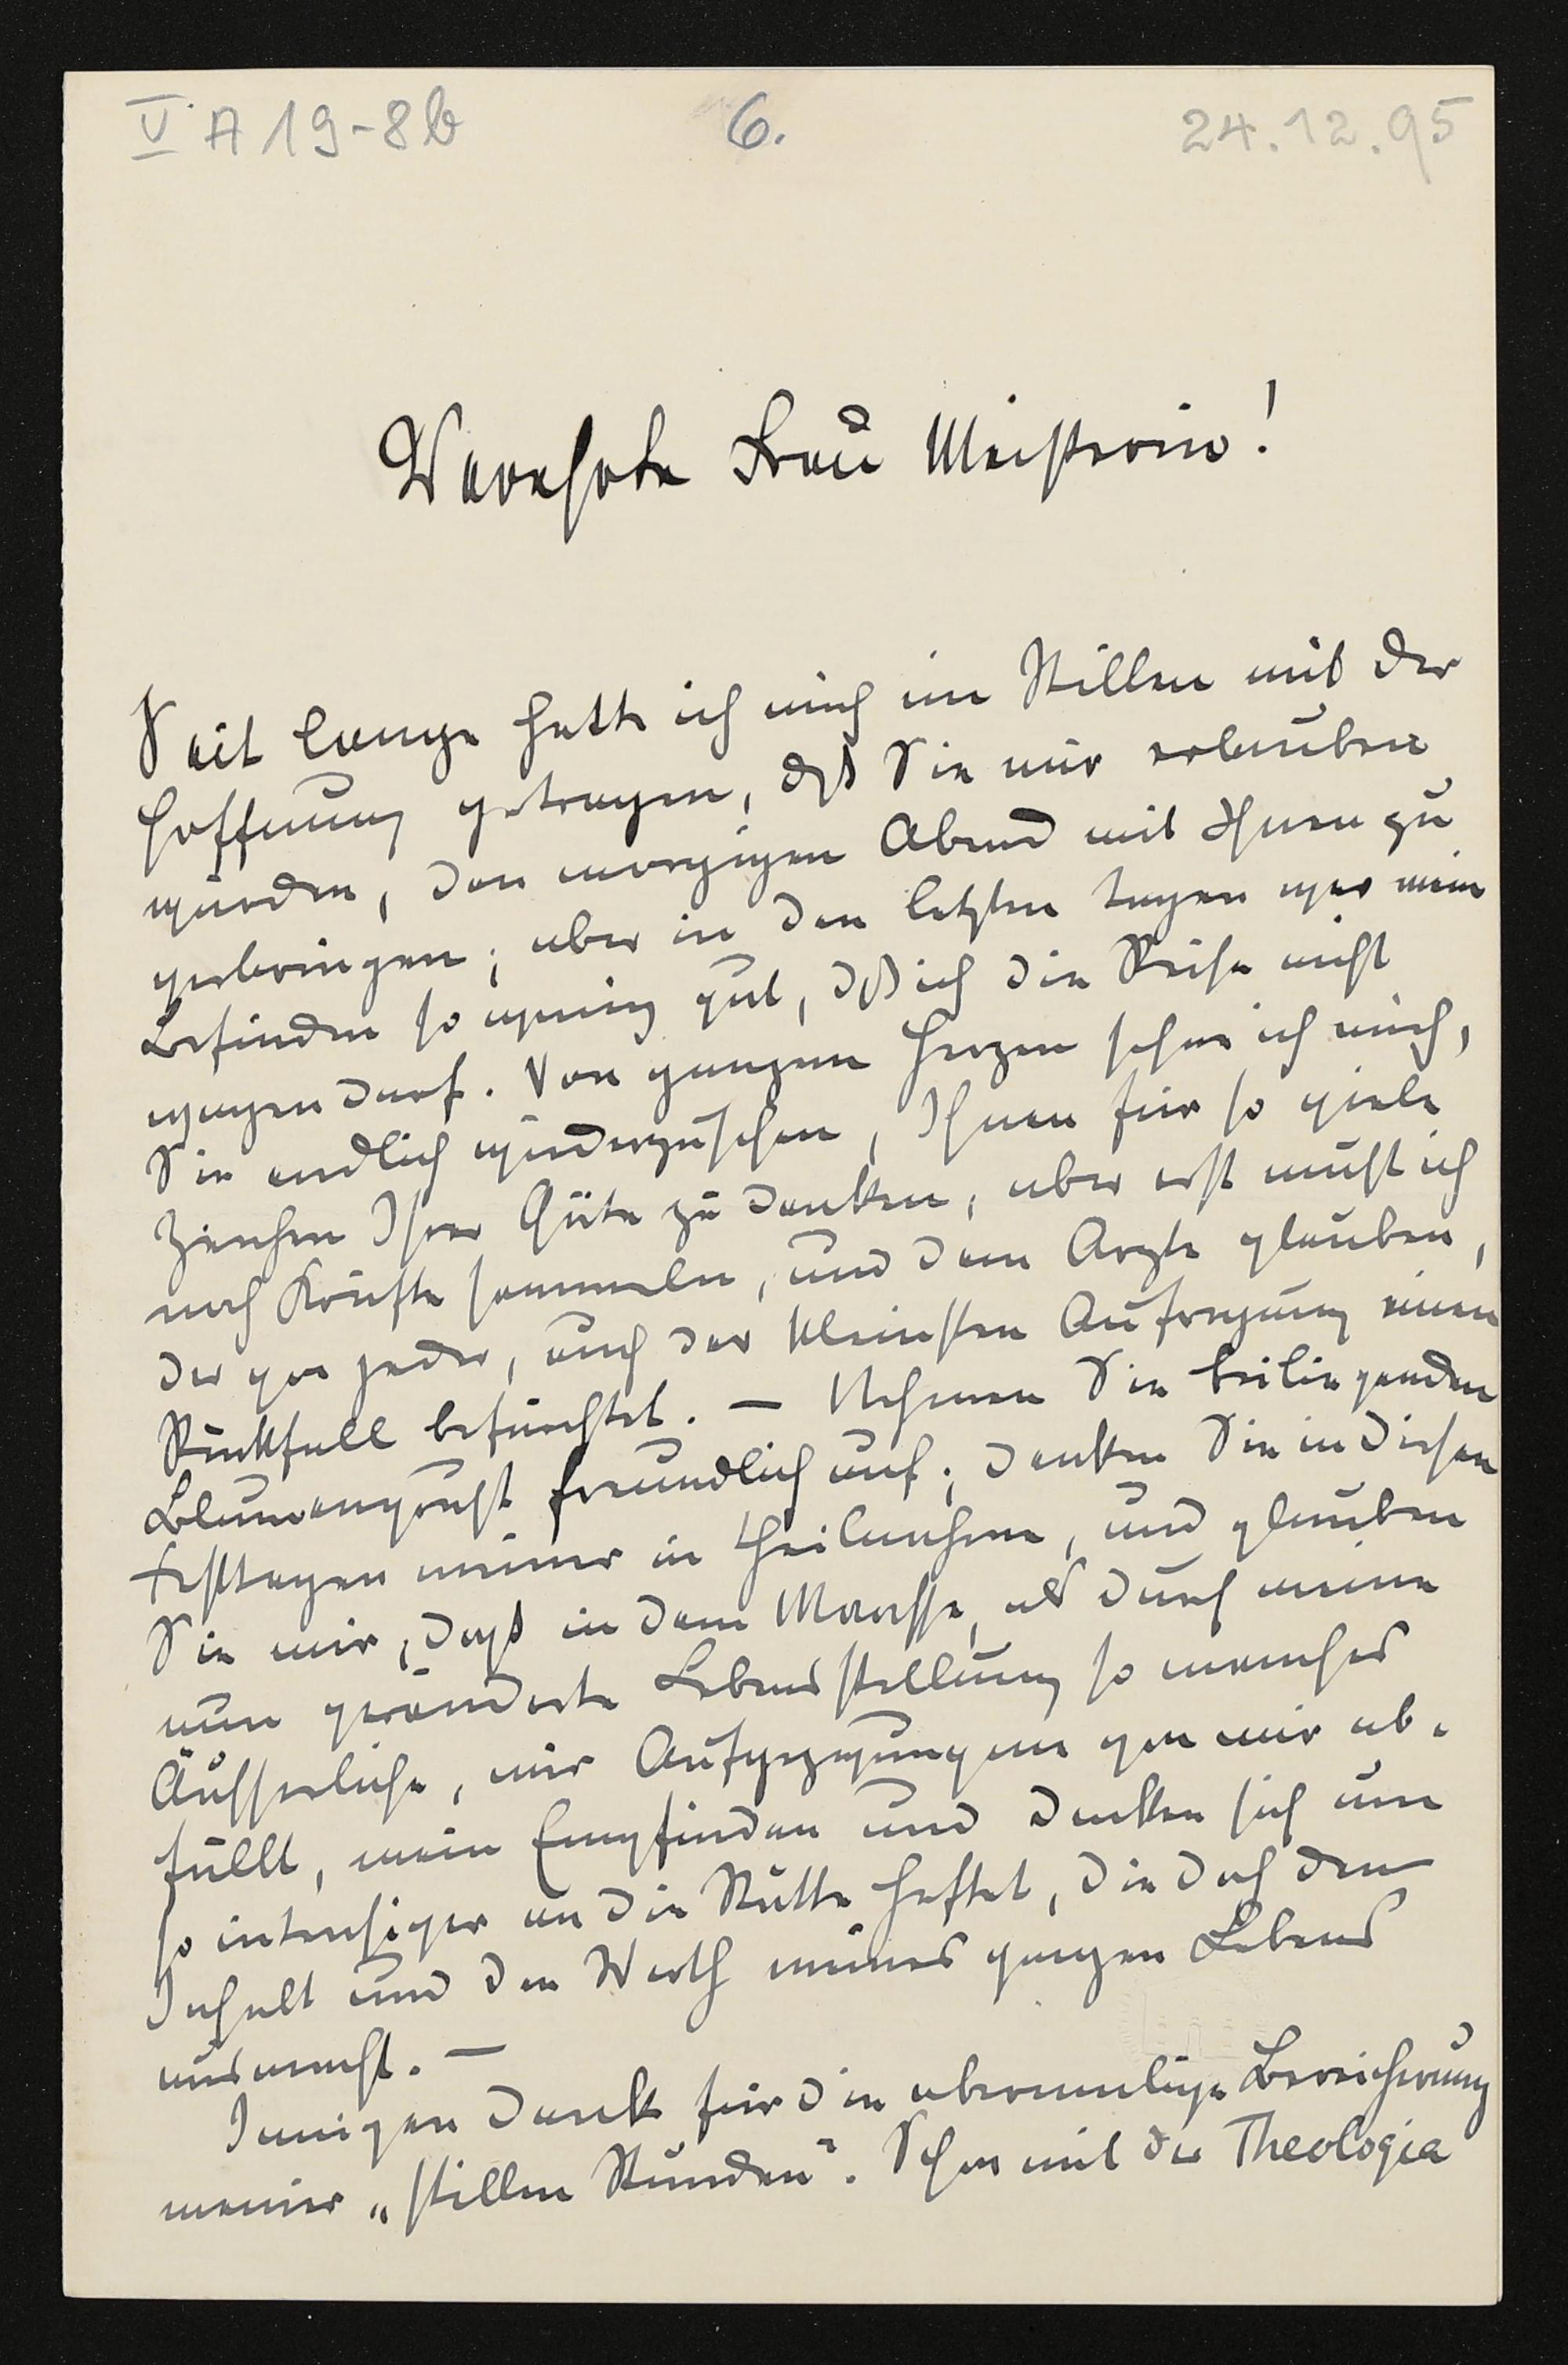 V A 19-8b 6. 24.12.95
Verehrte Frau Meisterin!
Seit lange hatte ich mich im Stillen mit der
Hoffnung getragen, dß Sie mir erlauben
würden, den morgigen Abend mit Ihnen zu
verbringen; aber in den letzten Tagen war mein
Befinden so wenig gut, dß ich die Reise nicht
wagen darf. Von ganzem Herzen sehne ich mich,
Sie endlich wiederzusehen, Ihnen für so viele
Zeichen Ihrer Güte zu danken; aber erst muß ich
noch Kräfte sammeln, und dem Arzte glauben,
der von jeder, auch der kleinsten Aufregung einen
Rückfall befürchtet. — Nehmen Sie beiliegenden
Blumengruß freundlich auf; denken Sie in diesen
Festtagen meiner in Theilnahme, und glauben
Sie mir, dass in dem Maasse, als durch meine
nun veränderte Lebensstellung so manches
Äusserliche, wie Aufregungen von mir ab-
fällt, mein Empfinden und Denken sich um
so intensiver an die Stätte heftet, die doch den
Inhalt und den Werth meines ganzen Lebens
ausmacht. —
Innigen Dank für die abermalige Bereicherung
meiner „stillen Stunden“. Schon mit der Theologia